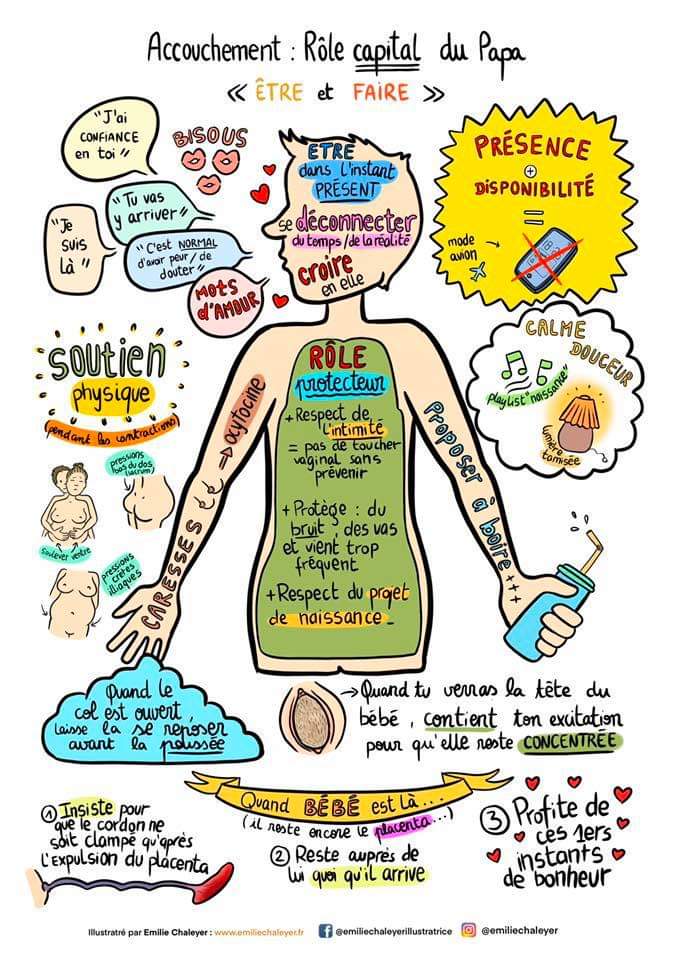 Accouchement : Rôle capital du Papa
« ÊTRE et FAIRE »
"J'ai
CONFIANCE
en toi"
BISOUS
"Tu vas
y arriver"
"Je
suis
là"
"C'est NORMAL
d'avoir peur / de
douter"
MOTS
d'AMOUR
ETRE
dans l'instant
PRÉSENT
se déconnecter
du temps / de la réalité
croire
en elle
PRÉSENCE
+
DISPONIBILITÉ
=
mode
avion
CALME
DOUCEUR
playlist "naissance"
lumière
tamisée
soutien
physique
(pendant les contractions)
pressions
bas du dos
(sacrum)
soulever ventre
pressions
crêtes
iliaques
CARESSES
=> ocytocine
RÔLE
protecteur
+ Respect de
l'intimité
= pas de toucher
vaginal sans
prévenir
+ Protège : du
bruit, des vas
et vient trop
fréquent
+ Respect du projet
de naissance_
Proposer à boire +++
Quand le
col est ouvert,
laisse la se reposer
avant la poussée
→ Quand tu verras la tête du
bébé, contient ton exitation
pour qu'elle reste CONCENTRÉE
Quand BÉBÉ est là...
(il reste encore le placenta...)
① Insiste pour
que le cordon ne
soit clampé qu'après
l'expulsion du placenta
② Reste auprès de
lui quoi qu'il arrive
③ Profite de
ces 1ers
instants
de bonheur
Illustratré par Emilie Chaleyer : www.emiliechaleyer.fr
@emiliechaleyerillustratrice
@emiliechaleyer